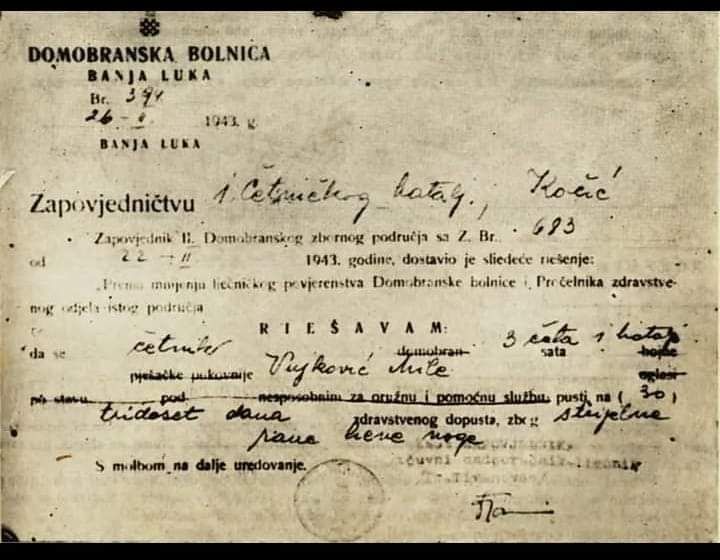 DOMOBRANSKA BOLNICA
BANJA LUKA
Br. 394
26 - II 1943. g.
BANJA LUKA
Zapovjedničtvu I. Četničkog batalj., Kočić
Zapovjednik II. Domobranskog zbornog područja sa Z. Br. 683
od 22 - II 1943. godine, dostavio je sliedeće riešenje:
„Prema mnijenju liečničkog povjerenstva Domobranske bolnice i Pročelnika zdravstve-
nog odjela istog područja
RIEŠAVAM:
da se četnik domobran 3 četa I batalj sata bojne
pješačke pukovnije Vujković Mile oglasi
po stavu pod nesposobnim za oružnu i pomoćnu službu, pusti na (30)
trideset dana zdravstvenog dopusta, zbog strijelne
rane lieve noge
S molbom na dalje uredovanje.